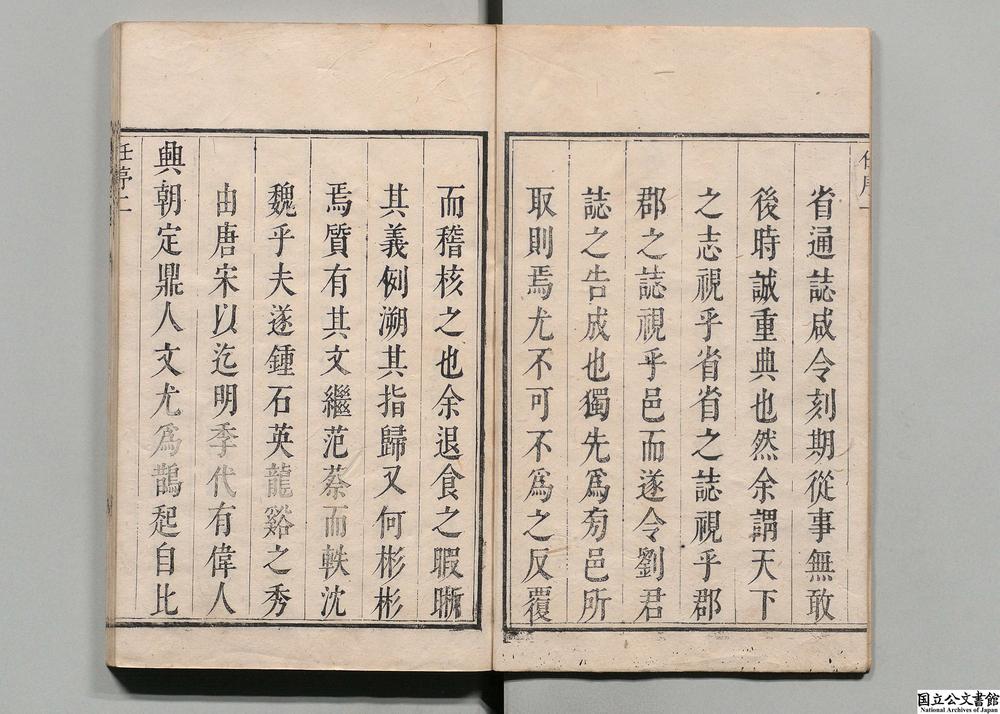 省通誌咸令刻期從事無敢
後時誠重典也然余謂天下
之志視乎省省之誌視乎郡
郡之誌視乎邑而遂令劉君
誌之告成也獨先為旁邑所
取則焉尤不可不為之反覆
而稽核之也余退食之暇晰
其義例溯其指歸又何彬彬
焉質有其文繼范蔡而軼沈
魏乎夫遂鍾石英龍谿之秀
由唐宋以迄明季代有偉人
興朝定鼎人文尤為鵲起自比
任序二
国立公文書館
National Archives of Japan